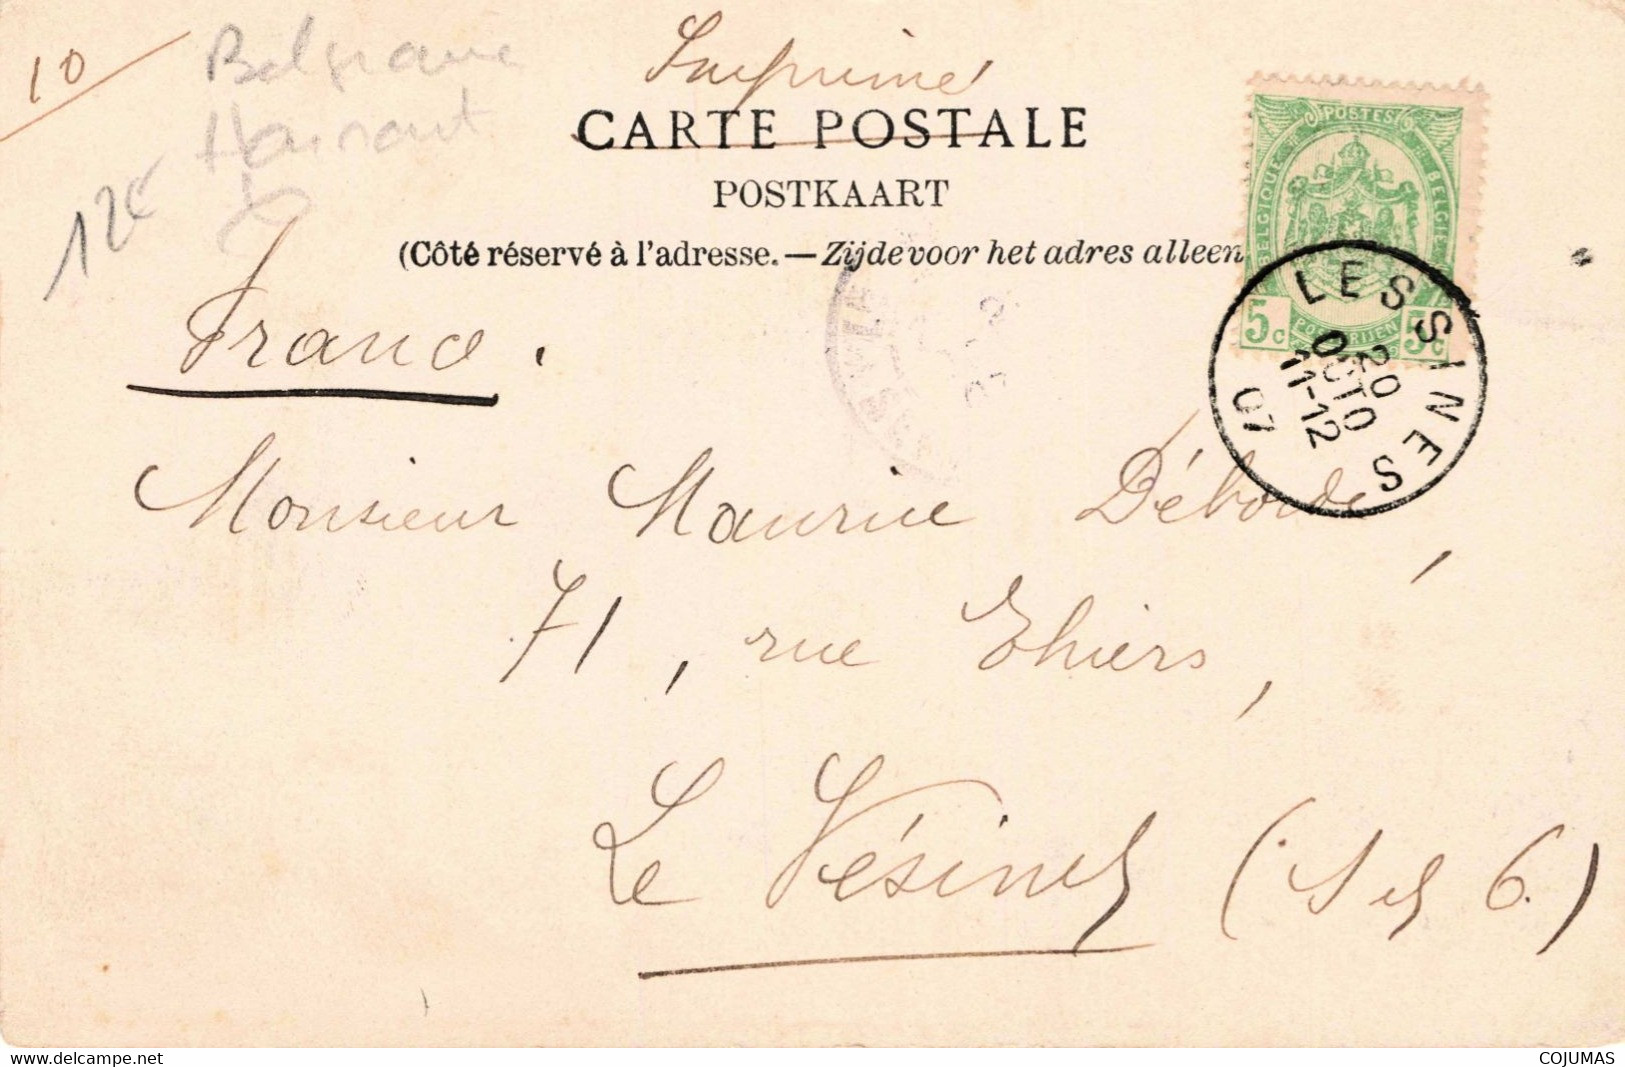 10
Belgique
Hainaut
12€
Imprimé
CARTE POSTALE
POSTKAART
(Côté réservé à l'adresse.—Zijde voor het adres alleen
POSTES
BELGIQUE BELGIË
5c 5c
POSTERIJEN
LESSINES
20
OCTO
11-12
07
France.
Monsieur Maurice Déborde,
71, rue Thiers,
Le Vésinet (S et O.)
www.delcampe.net
COJUMAS